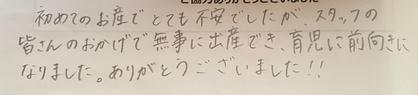 初めてのお産でとても不安でしたが、スタッフの
皆さんのおかげで無事に出産でき、育児に前向きに
なりました。ありがとうございました!!